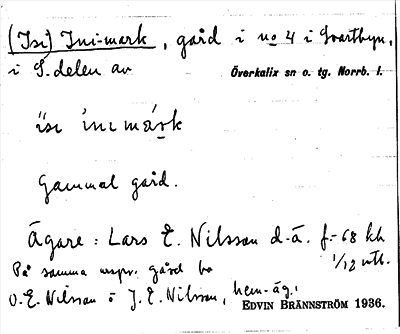 (Isi) Ini-mark, gård i no 4 i Svartbyn,
i S. delen av Överkalix sn o. tg. Norrb. l.
ísı ˈını márk
Gammal gård.
Ägare: Lars E. Nilsson d.ä. f.-68 kh
1/12 mtl.
På samma urspr. gård bo
O.E. Nilsson o J.E. Nilsson, hem.äg.
EDVIN BRÄNNSTRÖM 1936.